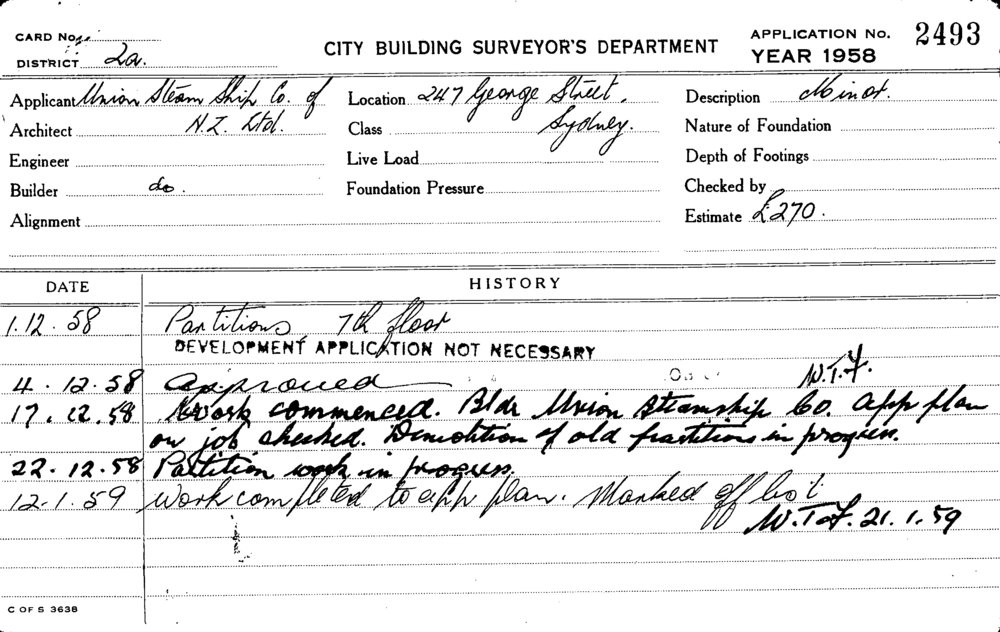 CARD No.
DISTRICT 2a.
CITY BUILDING SURVEYOR'S DEPARTMENT
APPLICATION No. 2493
YEAR 1958
Applicant Union Steam Ship Co. of
N.Z. Ltd.
Location 247 George Street,
Sydney.
Description Minor.
Architect
Class
Nature of Foundation
Engineer
Live Load
Depth of Footings
Builder do.
Foundation Pressure
Checked by
Alignment
Estimate £270.
DATE HISTORY
1.12.58 Partitions, 7th floor
DEVELOPMENT APPLICATION NOT NECESSARY
4.12.58 Approved W.T.F.
17.12.58 Work commenced. Bldr Union Steamship Co. app plan
on job checked. Demolition of old partitions in progress.
22.12.58 Partition work in progress.
12.1.59 Work completed to app plan. Marked off
W.T.F. 21.1.59
C OF S 3638